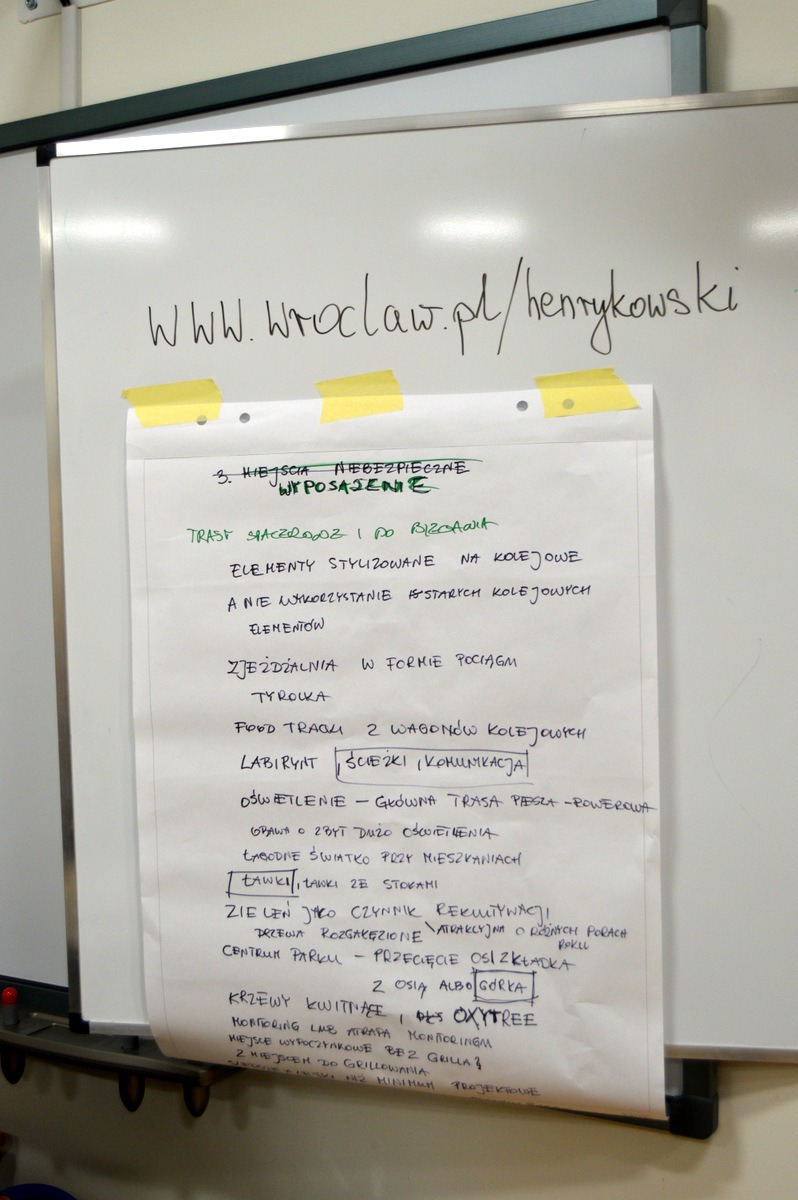 www.wroclaw.pl/henrykowski
3. MIEJSCIA NIEBEZPIECZNE
WYPOSAŻENIE
TRASY SPACEROWE I DO BIEGANIA
ELEMENTY STYLIZOWANE NA KOLEJOWE
A NIE WYKORZYSTANIE STARYCH KOLEJOWYCH
ELEMENTÓW
ZJEŻDŻALNIA W FORMIE POCIĄGU
TYROLKA
FOOD TRACKI Z WAGONÓW KOLEJOWYCH
LABIRYNT ŚCIEŻKI, KOMUNIKACJA
OŚWIETLENIE – GŁÓWNA TRASA PIESZA - ROWEROWA
OBAWA O ZBYT DUŻO OŚWIETLENIA
ŁAGODNE ŚWIATŁO PRZY MIESZKANIACH
ŁAWKI, ŁAWKI ZE STOŁAMI
ZIELEŃ JAKO CZYNNIK REKULTYWACJI
DRZEWA ROZGAŁĘZIONE \ ATRAKCYJNA O RÓŻNYCH PORACH
ROKU
CENTRUM PARKU – PRZECIĘCIE OSI ZKŁADKA
Z OSIĄ ALBO GÓRKA
KRZEWY KWITNĄCE I OXYTREE
MONITORING LUB ATRAPA MONITORINGU
MIEJSCE WYPOCZYNKOWE BEZ GRILLA?
Z MIEJSCEM DO GRILLOWANIA
NIŻ MINIMUM PROJEKTOWE